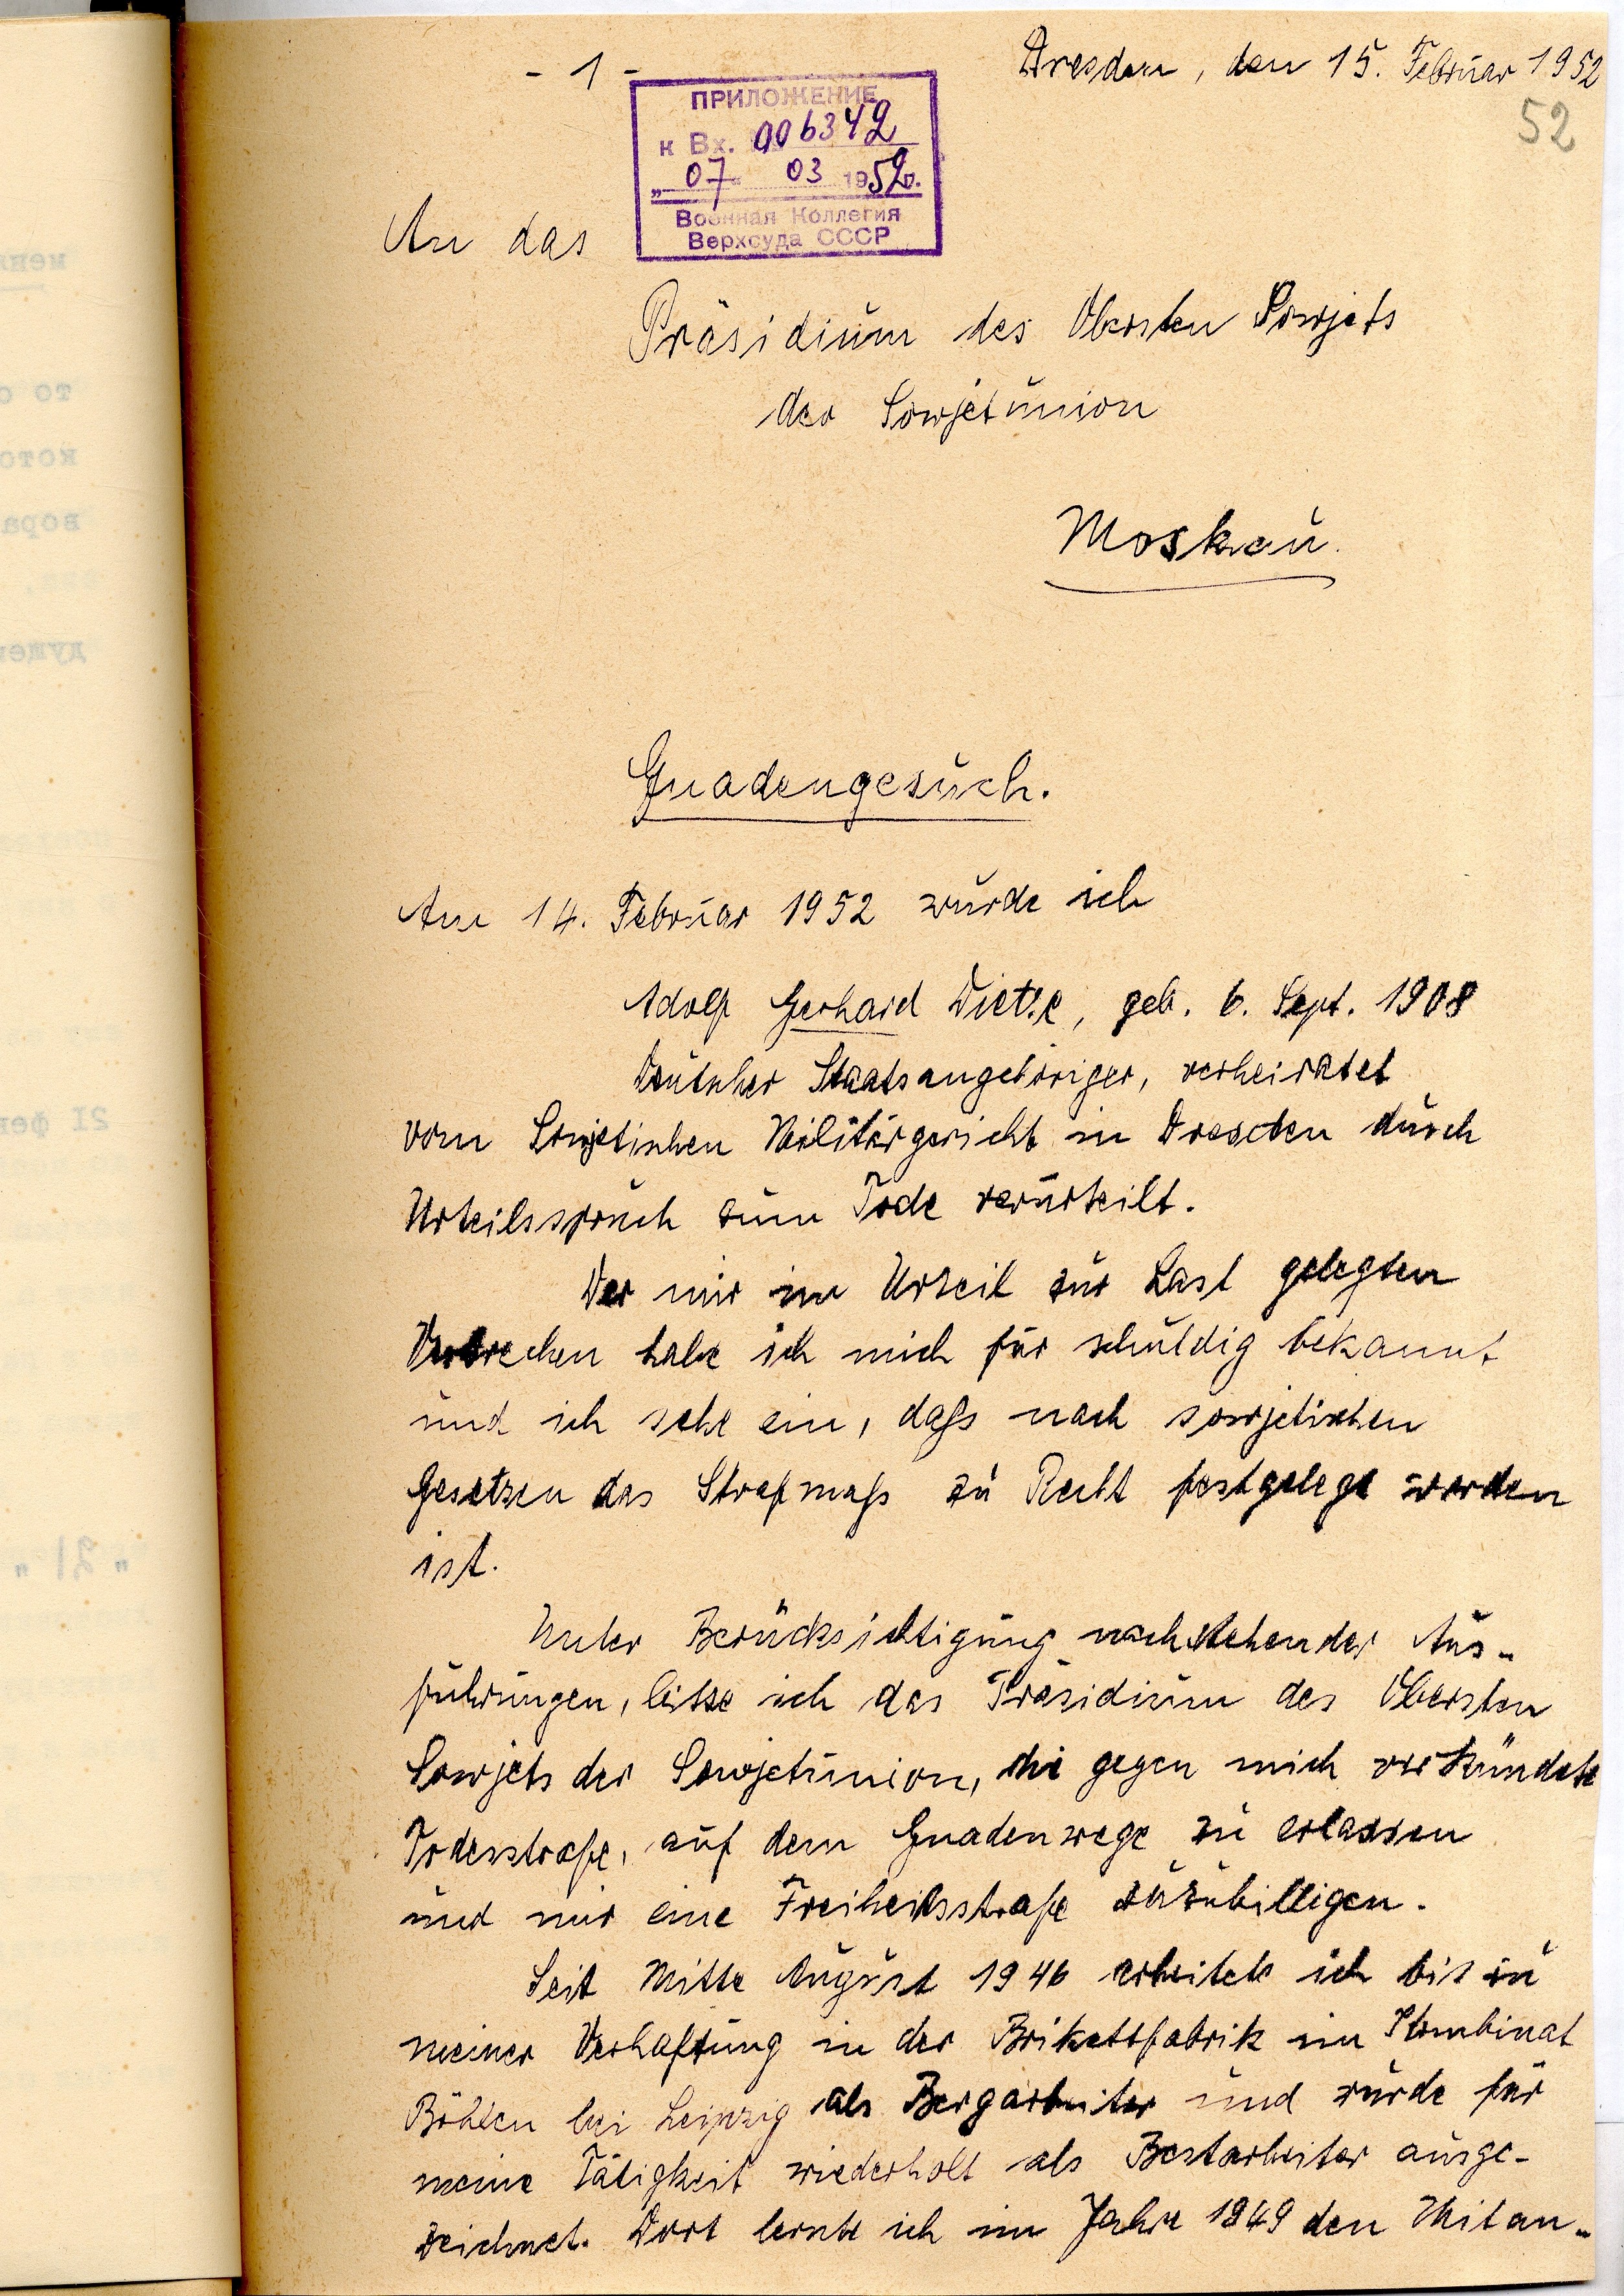 - 1 -
Dresden, den 15. Februar 1952
52
ПРИЛОЖЕНИЕ
к Вх. 006342
„07“ 03 1952г.
Военная Коллегия
Верхсуда СССР
An das
Präsidium des Obersten Sowjets
der Sowjetunion
Moskau.
Gnadengesuch.
Am 14. Februar 1952 wurde ich
Adolf Gerhard Dietze, geb. 6. Sept. 1908
Deutscher Staatsangehöriger, verheiratet
vom Sowjetischen Militärgericht in Dresden durch
Urteilsspruch zum Tode verurteilt.
Der mir im Urteil zur Last gelegten
Verbrechen habe ich mich für schuldig bekannt
und ich sehe ein, dass nach sowjetischen
Gesetzen das Strafmass zu Recht festgelegt worden
ist.
Unter Berücksichtigung nachstehender Aus-
führungen, bitte ich das Präsidium des Obersten
Sowjets der Sowjetunion, die gegen mich verkündete
Todesstrafe, auf dem Gnadenwege zu erlassen
und mir eine Freiheitsstrafe zuzubilligen.
Seit Mitte August 1946 arbeitete ich bis zu
meiner Verhaftung in der Brikettfabrik im Kombinat
Böhlen bei Leipzig als Bergarbeiter und wurde für
meine Tätigkeit wiederholt als Bestarbeiter ausge-
zeichnet. Dort lernte ich im Jahre 1949 den Mitan-